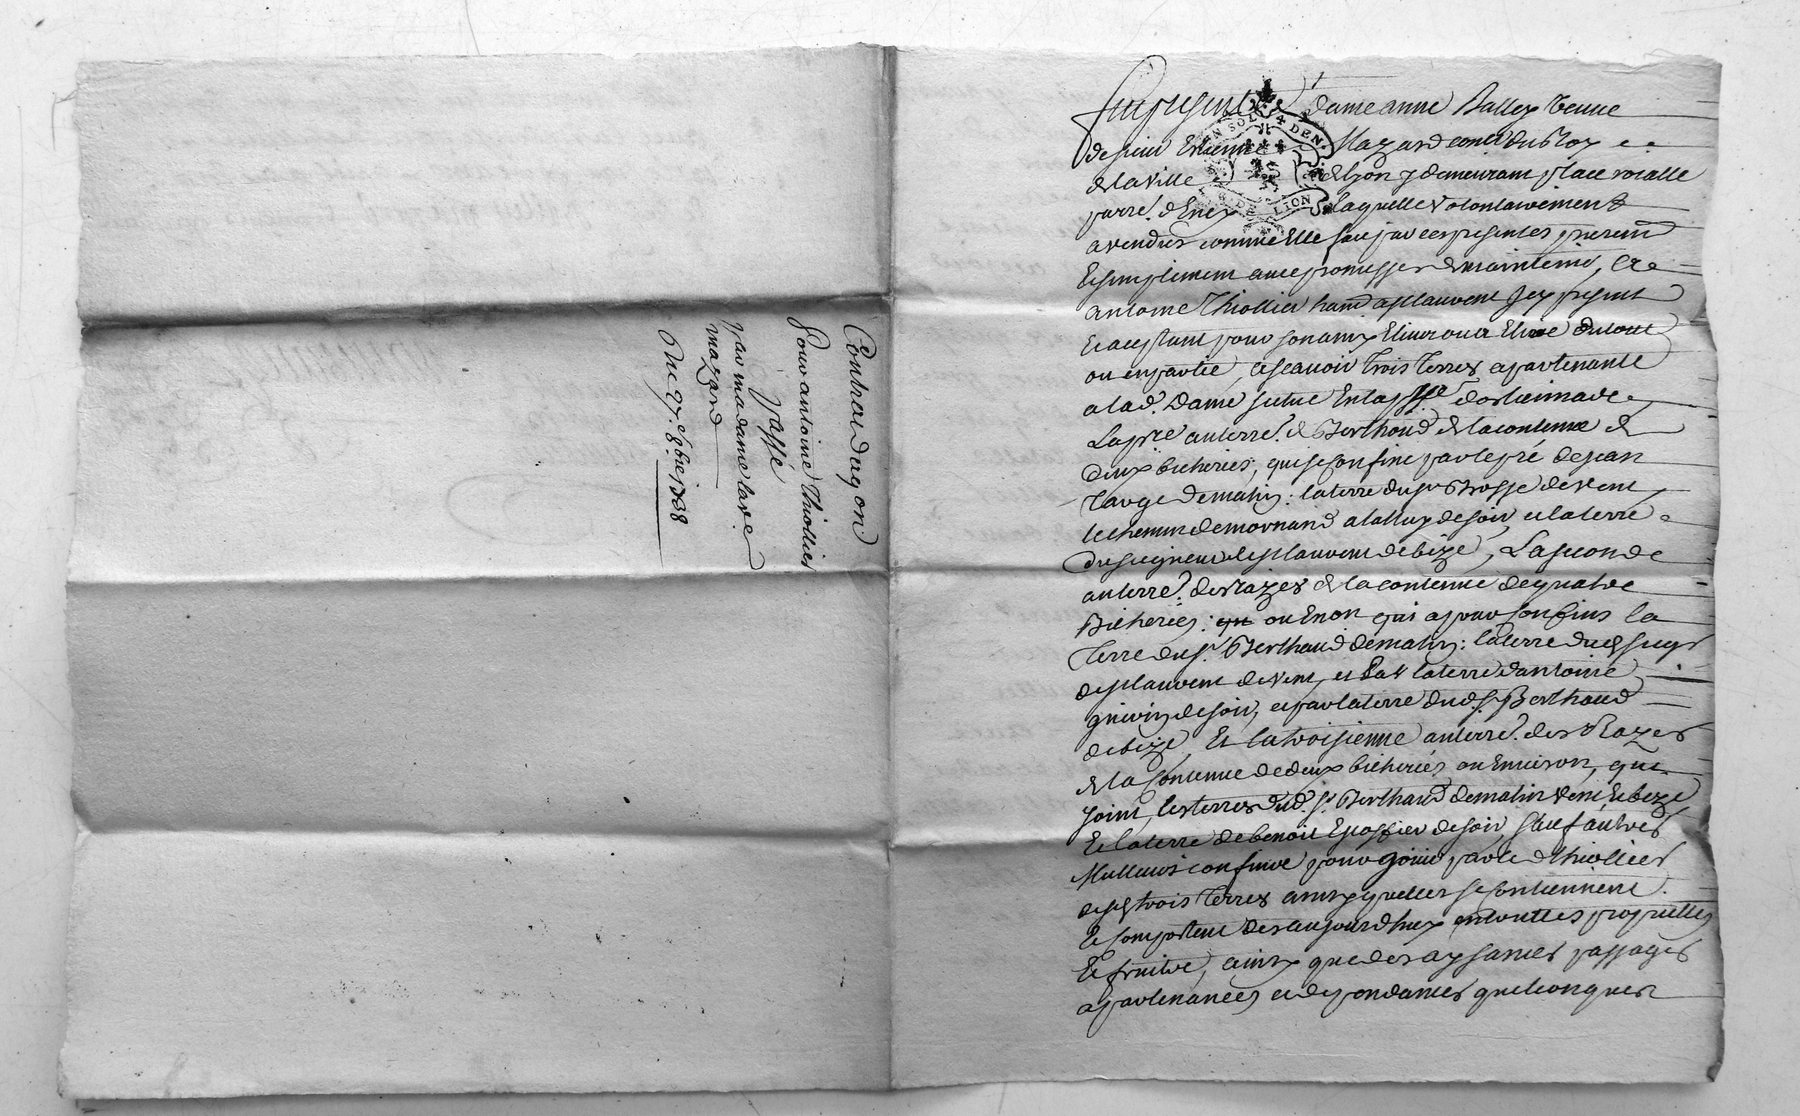 Contrat dug on
Pour antoine Thiollier
passé
par madame la ve
mazard
Du 27e 8bre 1738
Fut presente dame anne Balley veuve
de sieur Etienne Mazard coner du Roy
de la ville de Lyon y demeurant place roialle
parre. d'Enez laquelle volontairement
a vendus comme elle fait par ces presentes purement
et simplement avec promesses de maintenir, a
antoine Thiollier hant a st laurent Jcy present
et acceptant pour son amy Eleu ou a Elire du tout
ou en partie, a scavoir trois terres apartenante
a lad. Dame
La pre au terre. de Berthoud de la contenue de
deux bicheries, qui se confine par le pré de jean
de matin: la terre du sr Brosse de vent,
le chemin de mornand a de soir, et la terre
du seigneur de st laurent de bize, La seconde
au terre. des Razes de la contenue de quatre
Bicheries: ou Enon qui a pour confins la
Terre du sr. Berthaud de matin: la terre dud seigr
de st laurent de vent, et la terre d'antoine
de soir, et par la terre dud. sr. Berthaud
de bize, Et la troisienne au terre. des Razes
de la contenue de deux bicheries ou Environ, qui
joint les terres dud. sr. Berthaud de matin vent et bize
Et la terre de benoit de soir, sauf autres
Meilleurs confins pour jouir par le d thiollier
desd trois terres ainsy quelles se contiennent
Et comportent des aujourdhuy en toutes proprietes
Et fruits, ainsy que des aysances passages
apartenances et dependances quelconques
EN SOL 4 DEN.
G. DE LION